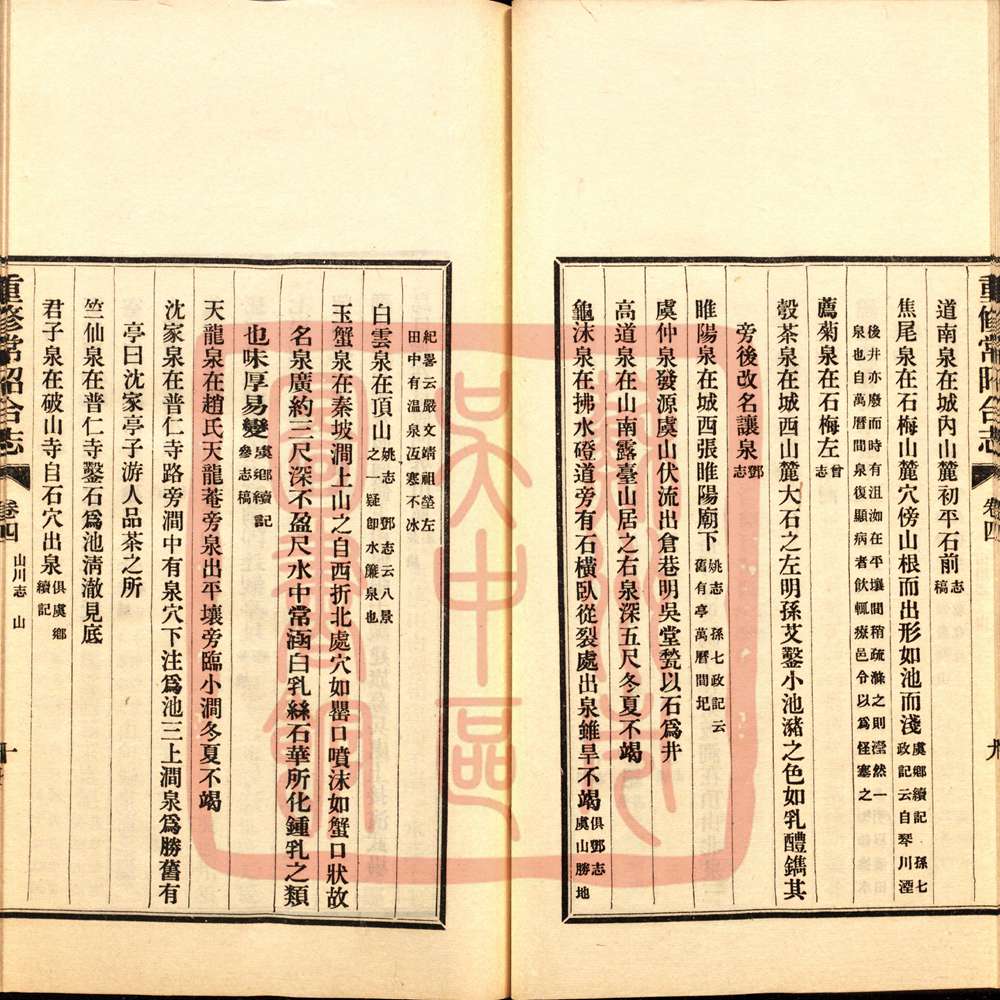 道南泉在城內山麓初平石前志稿
焦尾泉在石梅山麓穴傍山根而出形如池而淺虞鄉續記　孫七政記云自琴川湮
後井亦廢而時有沮洳在平壤間稍疏滌之則瀅然一
泉也自萬曆間泉復顯病者飲輒療邑令以為怪塞之
薦菊泉在石梅左曾志
㝅茶泉在城西山麓大石之左明孫艾鑿小池瀦之色如乳醴鐫其
旁後改名讓泉鄧志
睢陽泉在城西張睢陽廟下姚志　孫七政記云舊有亭萬曆間圮
虞仲泉發源虞山伏流出倉巷明吳堂甃以石爲井
高道泉在山南露臺山居之右泉深五尺冬夏不竭
龜沫泉在拂水磴道旁有石橫臥從裂處出泉雖旱不竭俱鄧志　虞山勝地
紀畧云嚴文靖祖塋左
田中有溫泉沍寒不冰
白雲泉在頂山姚志　鄧志云八景之一疑卽水簾泉也
玉蟹泉在秦坡澗上山之自西折北處穴如罌口噴沫如蟹口狀故
名泉廣約三尺深不盈尺水中常涵白乳絲石華所化鍾乳之類
也味厚易變虞鄉續記參志稿
天龍泉在趙氏天龍菴旁泉出平壤旁臨小澗冬夏不竭
沈家泉在普仁寺路旁澗中有泉穴下注爲池三上澗泉爲勝舊有
亭曰沈家亭子游人品茶之所
竺仙泉在普仁寺鑿石爲池淸澈見底
君子泉在破山寺自石穴出泉俱虞鄉續記
重修常昭合志
卷四
山川志　山